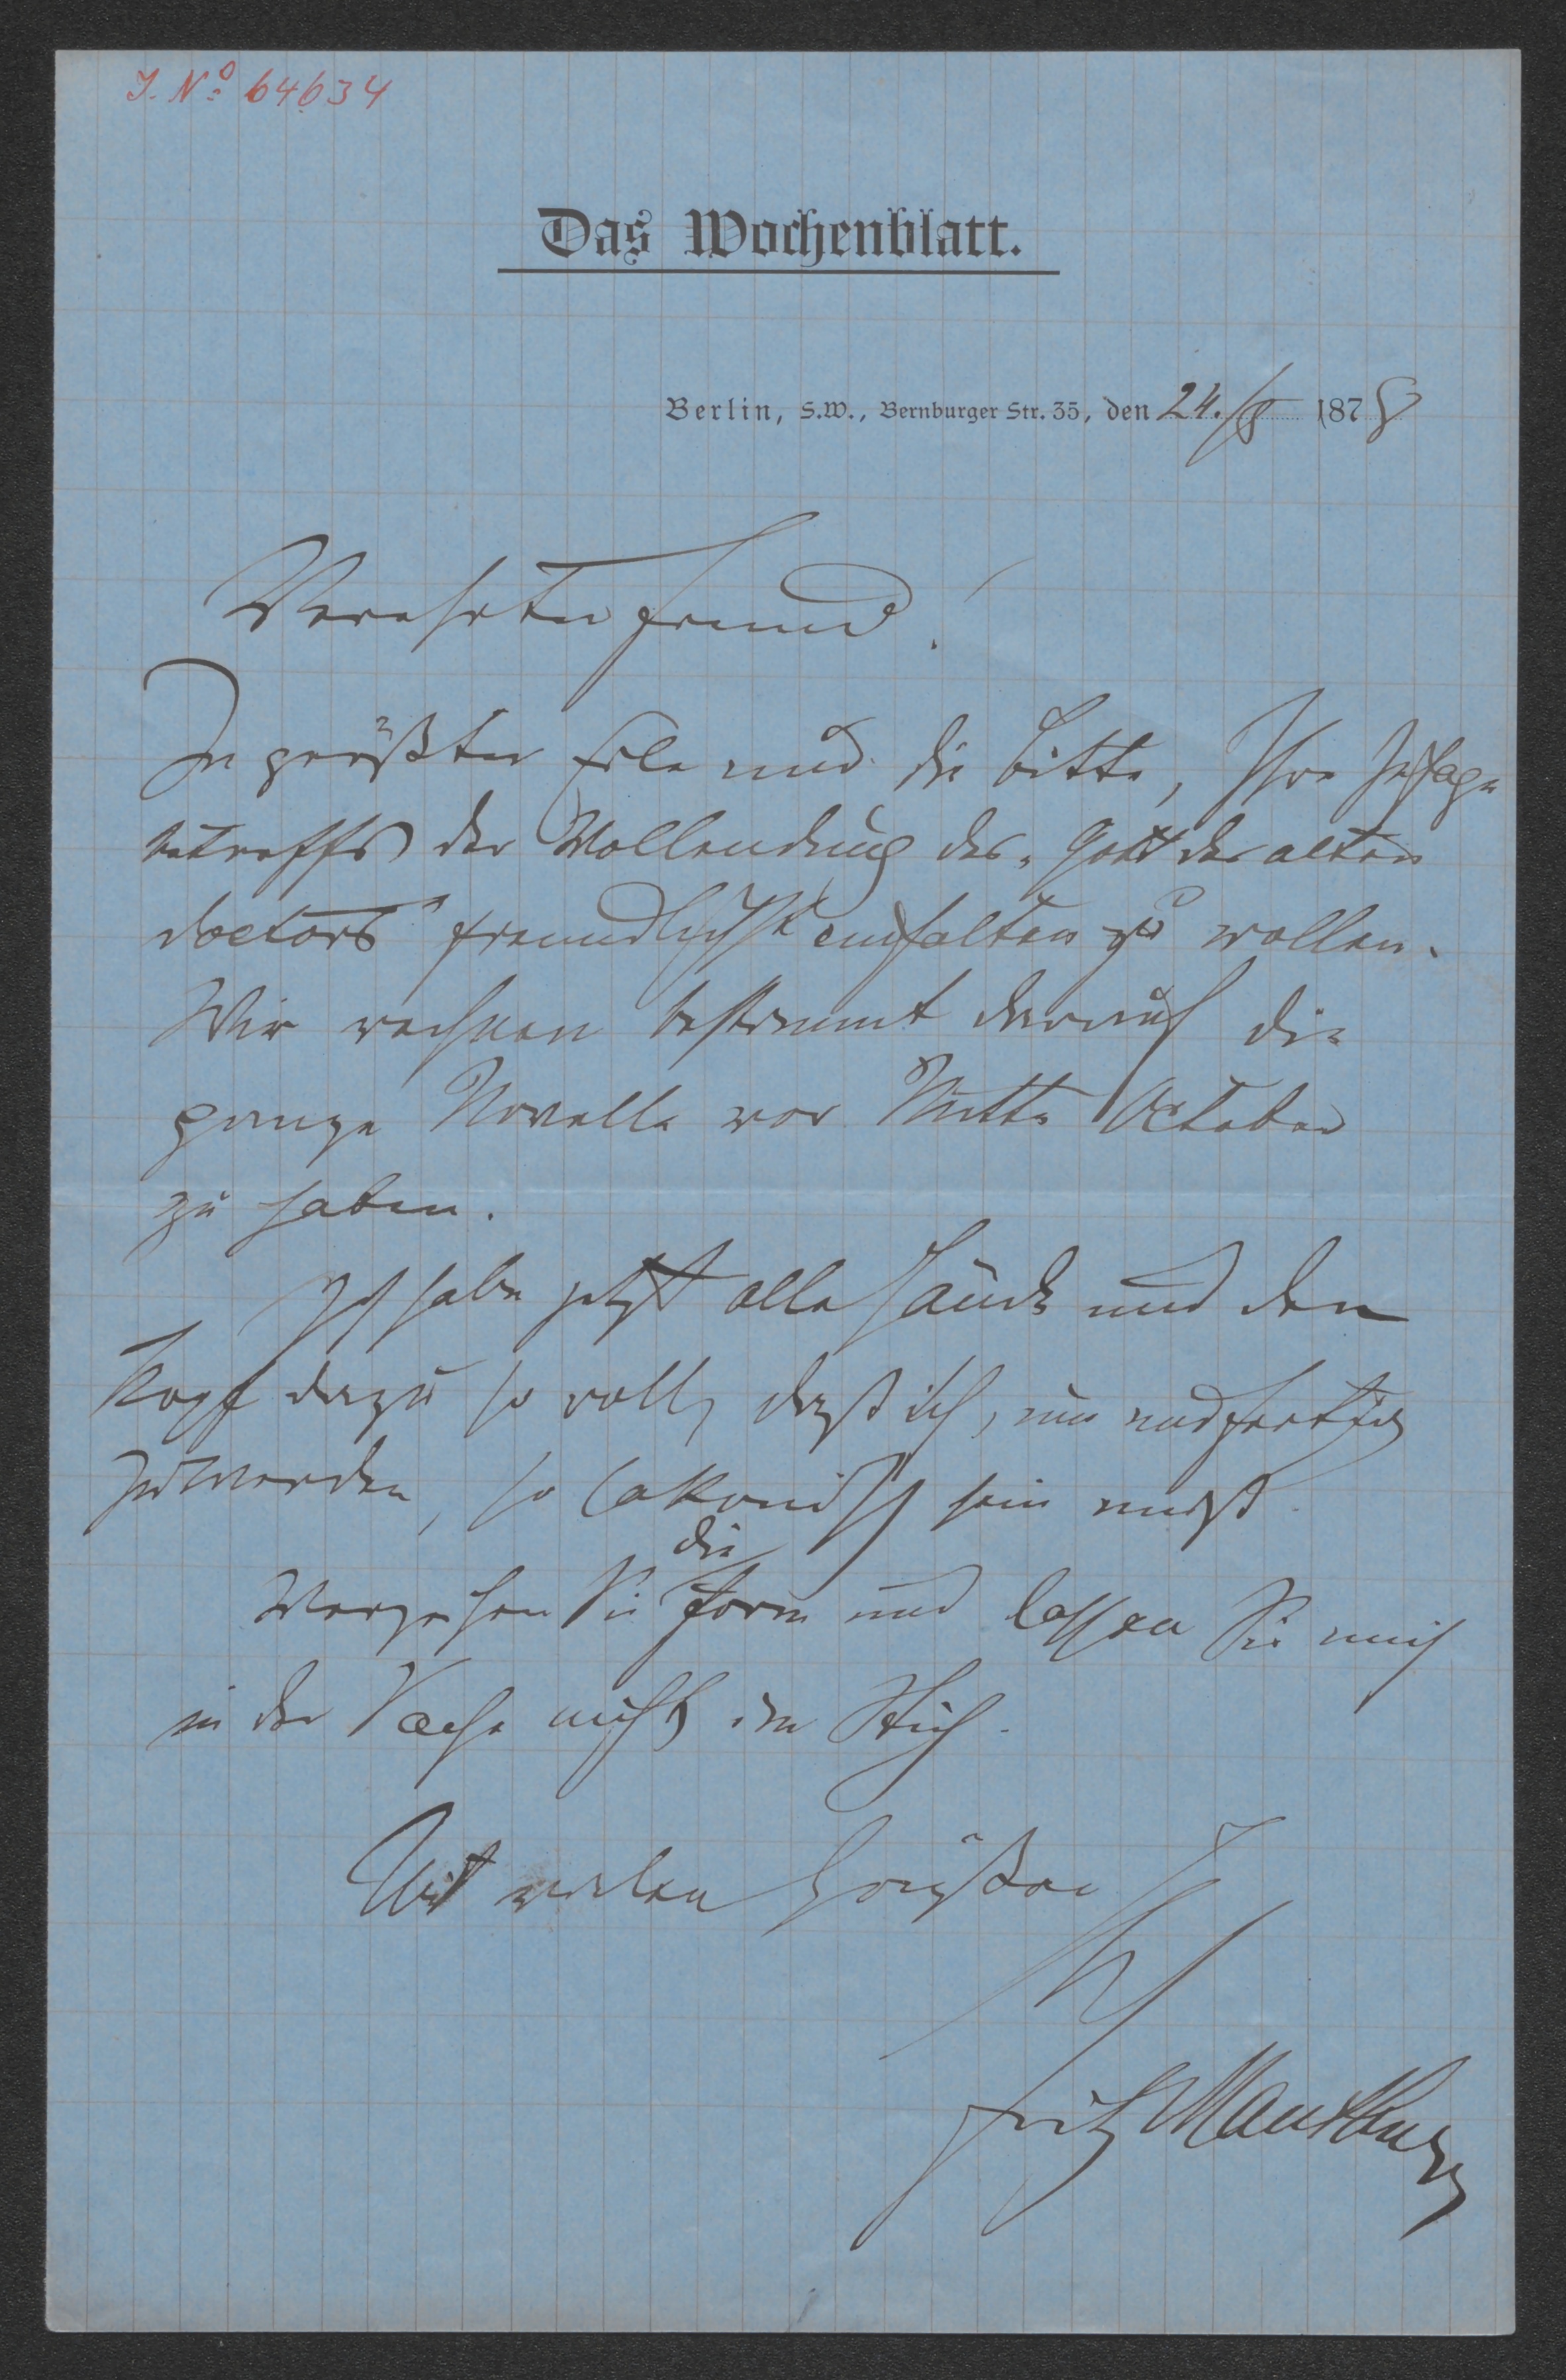 J. No 64634
Das Wochenblatt.
Berlin, S.W., Bernburger Str. 35, den 24./8 1878
Verehrter Freund!
In größter Eile nur die Bitte, Ihre Zusage
betreffs der Vollendung des „Gott des alten
Doctors" freundlichst einhalten zu wollen.
Wir rechnen bestimmt darauf die
ganze Novelle vor Mitte October
zu haben.
Ich habe jetzt alle Hände und den
Kopf dazu so voll, daß ich, um nur fertig
zu werden, so lakonisch sein muß.
die
Verzeihen Sie Form und lassen Sie mich
in der Sache nicht im Stich.
Mit vielen Grüßen
Ihr
Fritz Mauthner